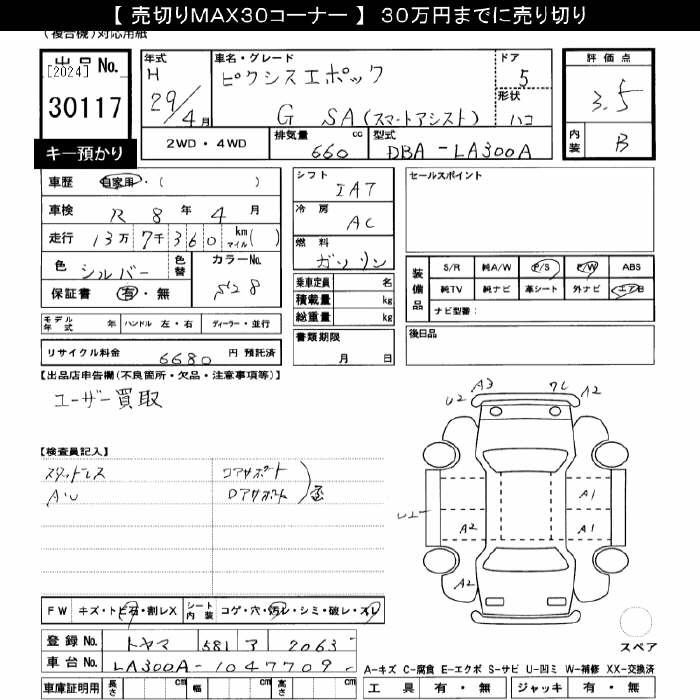 【 売切りMAX30コーナー 】 30万円までに売り切り
(複合機)対応用紙
出品No.
[2024]
30117
キー預かり
年式 H 29/4月
車名・グレード ピクシスエポック
G SA(スマートアシスト)
ドア 5
形状 ハコ
評価点 3.5
内装 B
2WD・4WD
排気量 660 cc
型式 DBA-LA300A
車歴 自家用・( )
車検 R 8年 4月
走行 13万7千360 km マイル( )
色 シルバー 色替
カラーNo. S28
保証書 有・無
モデル年式 年 ハンドル 左・右 ディーラー・並行
リサイクル料金 6680 円 預託済
シフト IAT
冷房 AC
燃料 ガソリン
乗車定員 名
積載量 kg
総重量 kg
書類期限 月 日
セールスポイント
装備品
S/R 純A/W P/S P/W ABS
純TV 純ナビ 革シート 外ナビ エアB
ナビ型番:
後日品
【出品店申告欄(不良箇所・欠品・注意事項等)】
ユーザー買取
【検査員記入】
スタッドレス コアサポート
A・U ロアサポート
U2 A3 A2
U2
A2
A2
A1
A1
FW キズ・トビ石・割レX シート内装 コゲ・穴・汚レ・シミ・破レ・スレ
登録No. トヤマ 581 ア 2063
車台No. LA300A-1047709
車庫証明用 長さ cm 幅 cm 高さ cm
スペア
A-キズ C-腐食 E-エクボ S-サビ U-凹ミ W-補修 XX-交換済
工具 有・無 ジャッキ 有・無